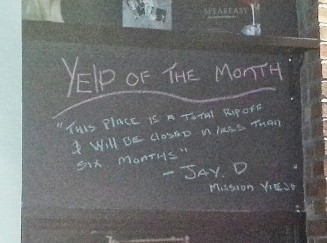 SPEAKEASY
YELP OF THE MONTH
"THIS PLACE IS A TOTAL RIPOFF
& WILL BE CLOSED IN LESS THAN
SIX MONTHS"
- JAY. D
MISSION VIEJO